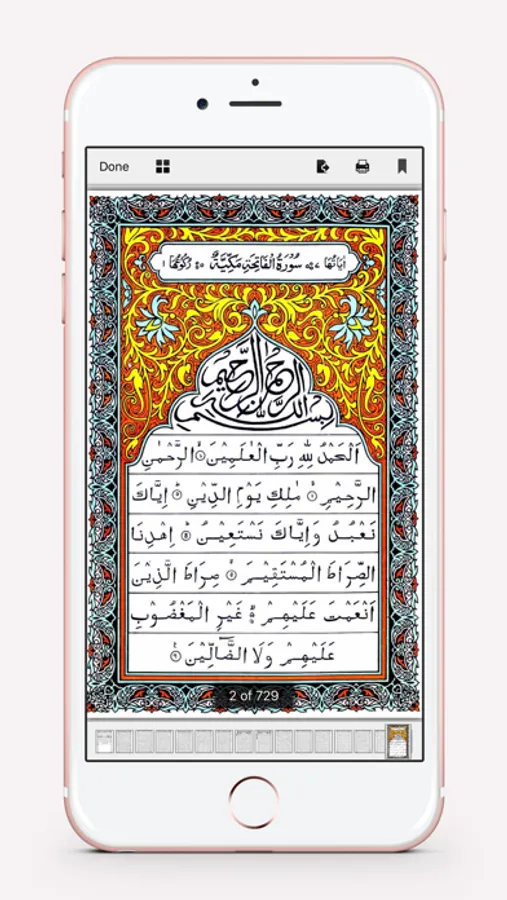 Done
اٰيَاتُهَا ٧ سُوۡرَةُ الۡفَاتِحَةِ مَكِّيَّةٌ ٥ رُكُوۡعُهَا ١
بِسۡمِ اللّٰهِ الرَّحۡمٰنِ الرَّحِيۡمِ
اَلۡحَمۡدُ لِلّٰهِ رَبِّ الۡعٰلَمِيۡنَ ۙ‏﴿۱﴾ الرَّحۡمٰنِ
الرَّحِيۡمِ ۙ‏﴿۲﴾ مٰلِكِ يَوۡمِ الدِّيۡنِ ؕ‏﴿۳﴾ اِيَّاكَ
نَعۡبُدُ وَاِيَّاكَ نَسۡتَعِيۡنُ ؕ‏﴿۴﴾ اِهۡدِنَا
الصِّرَاطَ الۡمُسۡتَقِيۡمَ ۙ‏﴿۵﴾ صِرَاطَ الَّذِيۡنَ
اَنۡعَمۡتَ عَلَيۡهِمۡ ۙ‏﴿۶﴾ غَيۡرِ الۡمَغۡضُوۡبِ
عَلَيۡهِمۡ وَلَا الضَّآلِّيۡنَ ‏﴿۷﴾
2 of 729